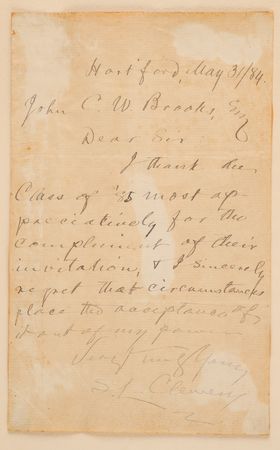 Hartford, May 31/84.
John C. W. Brooks, Esq
Dear Sir:
I thank the
Class of '85 most ap-
preciatively for the
compliment of their
invitation, & I sincerely
regret that circumstances
place the acceptance of
it out of my power.
Very Truly Yours,
S. L. Clemens